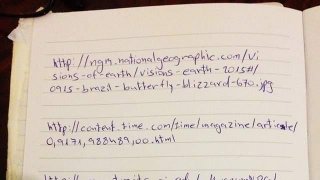 http://ngm.nationalgeographic.com/vi
sions-of-earth/visions-earth-2015#/
0915-brazil-butterfly-blizzard-670.jpg
http://content.time.com/time/magazine/article/
0,9171,988489,00.html